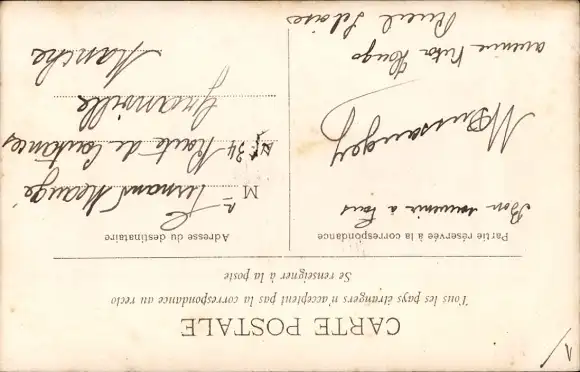 CARTE POSTALE
Tous les pays étrangers n'acceptent pas la correspondance au recto
Se renseigner à la poste
Partie réservée à la correspondance
Bon souvenir à tous
avenue Victor Hugo
Rueil
Adresse du destinataire
M Fernand
34 Route de Coutances
Granville
Manche